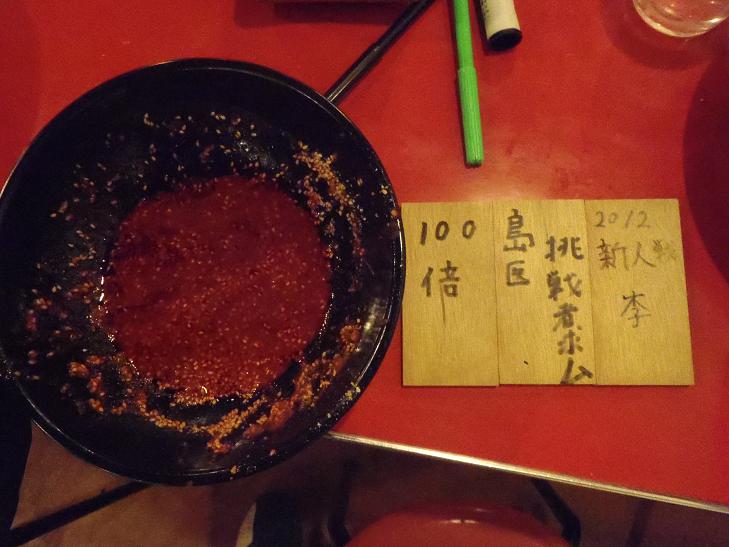 100
倍
島区
挑戦者ホム
2012
新人戦
李